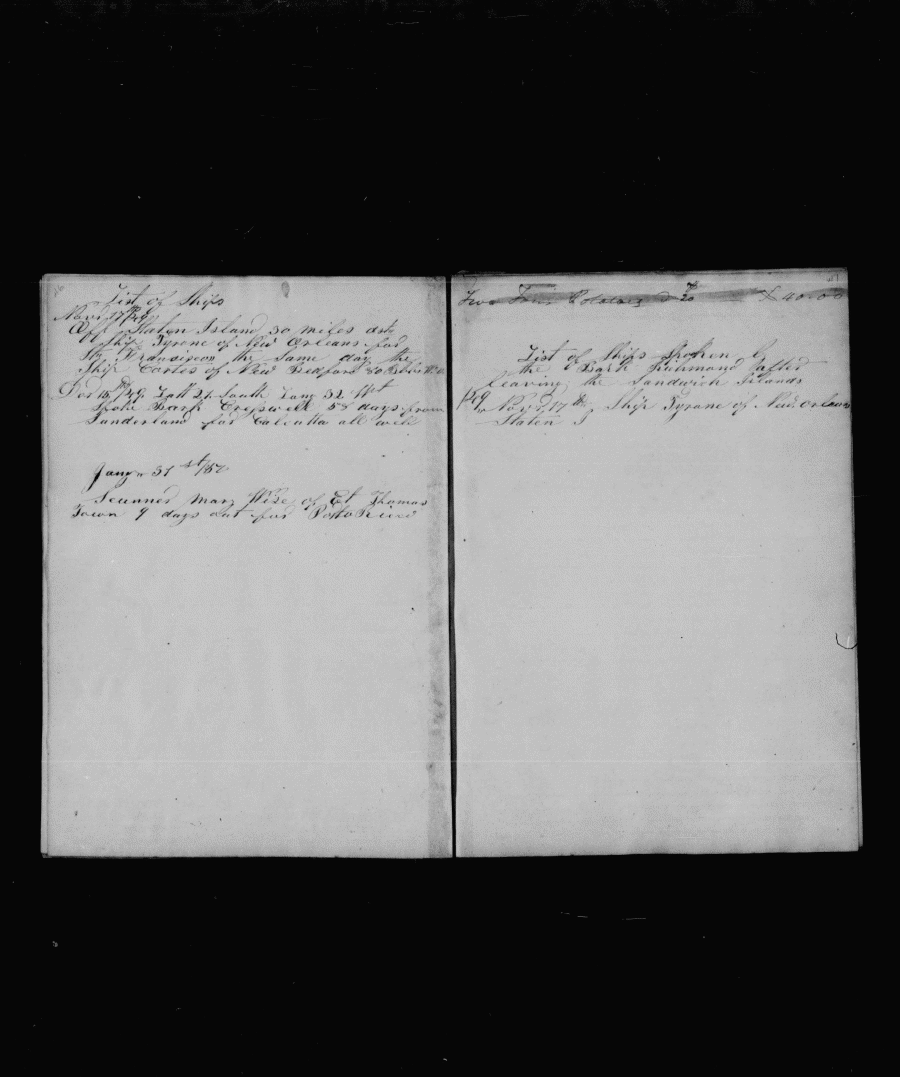 List of Ships
Novr 17th/49
Off Staten Island 30 miles dist
Ship Tyrone of New Orleans for
St Francisco the same day the
Ship Cortes of New Bedford 80
Decr 15th/49 Latt 27 South Long 32 Wst
Spoke Bark Creswell 58 days from
Sunderland for Calcutta all well
Jany 31st/50
Scunner Mary Wise of St Thomas
Town 9 days out for Porto Rico
27
Two Tons Potatoes 20 $40.00
List of Ships Spoken by
the Bark Richmond after
leaving the Sandwich Islands
1849 Novr 17th Ship Tyrone of New Orleans
Staten I